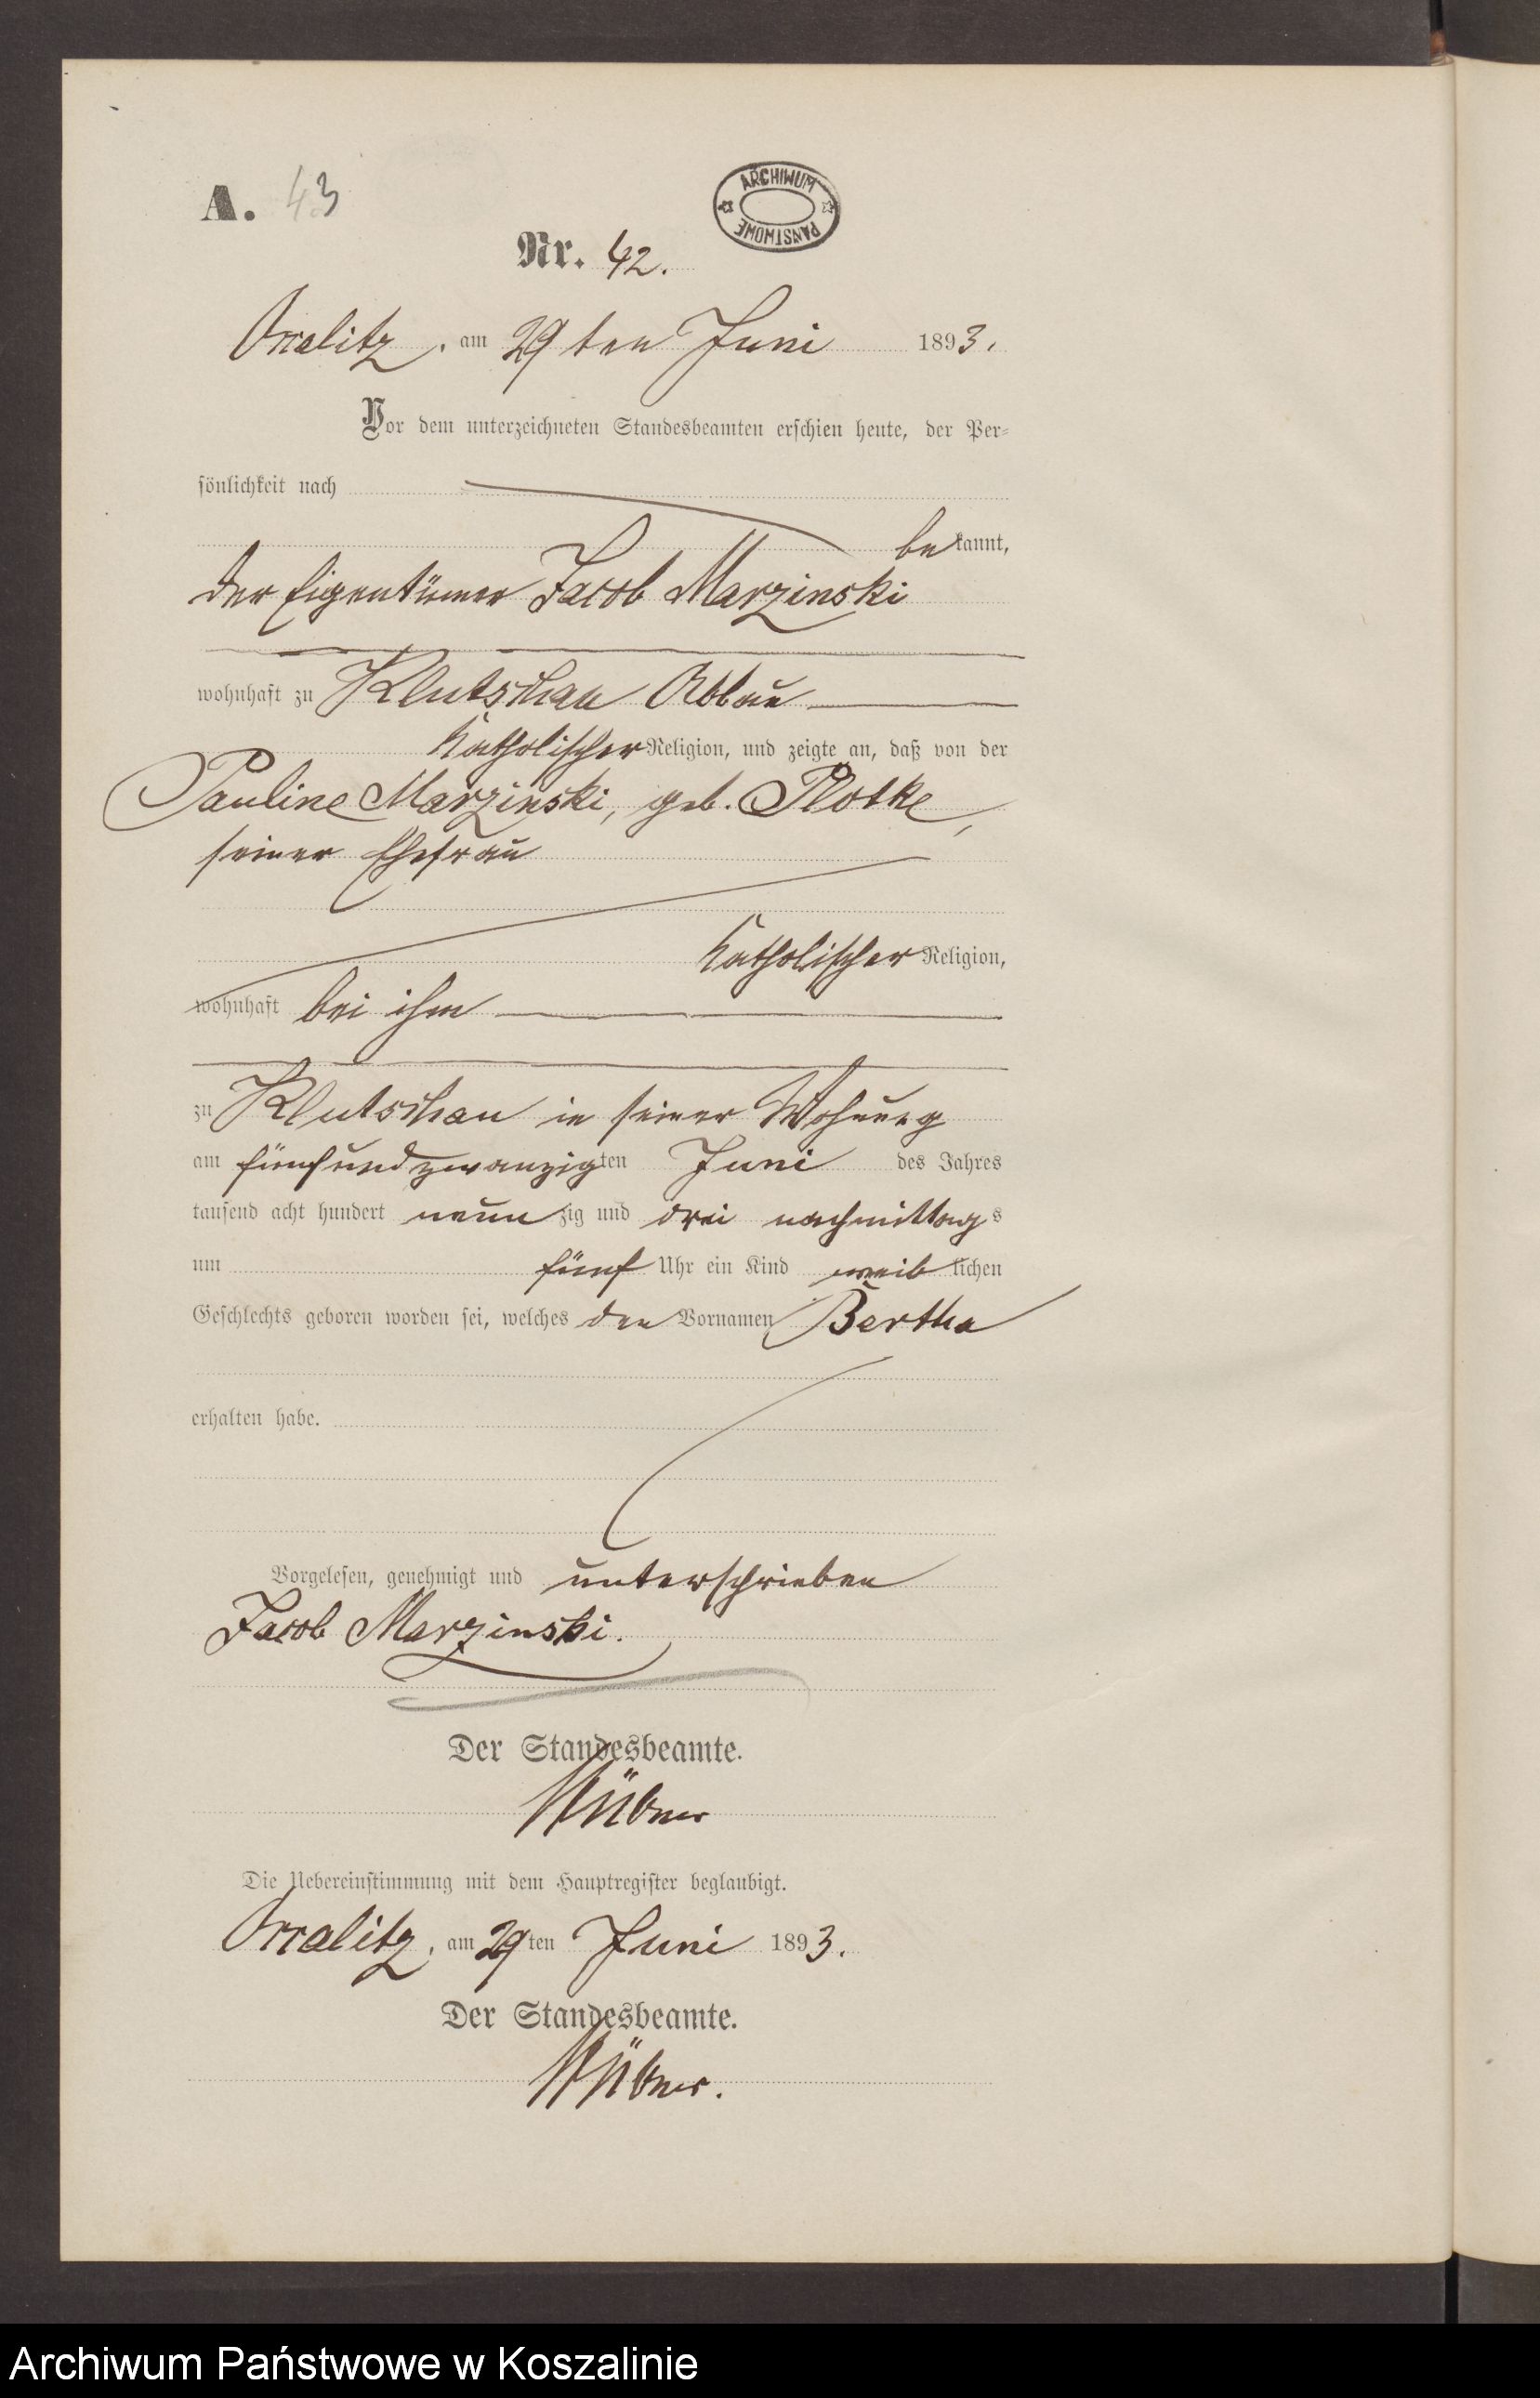 A. 43
ARCHIWUM PAŃSTWOWE
Nr. 42.
Ossalitz, am 29ten Juni 1893.
Vor dem unterzeichneten Standesbeamten erschien heute, der Per-
sönlichkeit nach
bekannt,
der Eigentümer Jacob Marzinski
wohnhaft zu Klutschau Abbau
katholischer Religion, und zeigte an, daß von der
Pauline Marzinski, geb. Plotke,
seiner Ehefrau
katholischer Religion,
wohnhaft bei ihm
zu Klutschau in seiner Wohnung
am fünfundzwanzigten Juni des Jahres
tausend acht hundert neunzig und drei nachmittags
um fünf Uhr ein Kind weiblichen
Geschlechts geboren worden sei, welches den Vornamen Bertha
erhalten habe.
Vorgelesen, genehmigt und unterschrieben
Jacob Marzinski.
Der Standesbeamte.
Die Uebereinstimmung mit dem Hauptregister beglaubigt.
Ossalitz, am 29ten Juni 1893.
Der Standesbeamte.
Archiwum Państwowe w Koszalinie